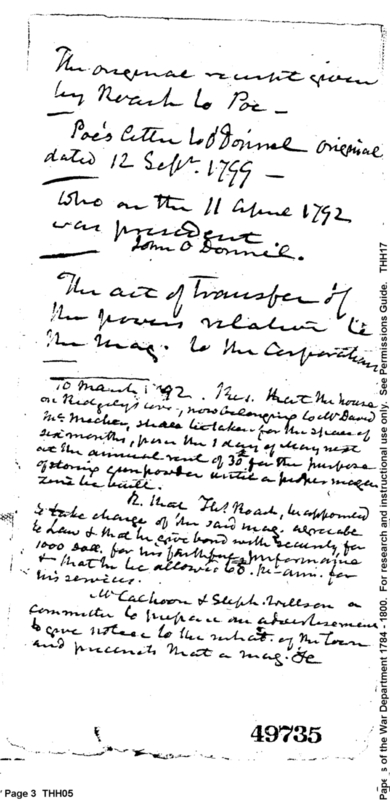 The original receipt given
by Roach to Poe —
Poe's letter to O'Donnel original
dated 12 Sept. 1799 —
Who on the 11 April 1792
was president
John O Donnel.
The act of transfer of
the powers relative to
the mag. to the Corporation
10 March 1792. Res. that the house
on Ridgely's cove, now belonging to Mr David
Mc Mechen, shall be taken for the space of
six months, from the 1 day of May next
at the annual rent of 30 for the purpose
of storing gunpowder until a proper maga
zine be built.
R. that Ths Roach, be appointed
to take charge of the said mag. agreeable
to Law & that he give bond with security, for
1000 doll. for his faithful performance
& that he be allowed 60. pr. ann. for
his services.
Mr Calhoon & Steph. Willson a
committee to prepare an advertisement
to give notice to the inhabt. of the town
and precincts that a mag. &c
49735
Page 3 THH05
Papers of the War Department 1784 - 1800. For research and instructional use only. See Permissions Guide. THH17